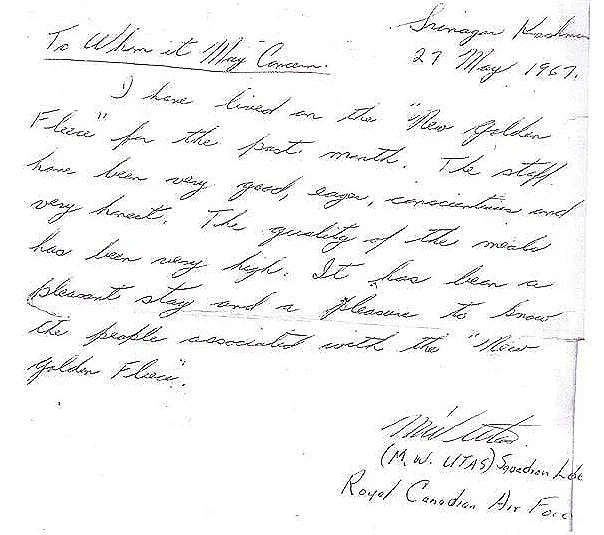 Srinagar Kashmir
27 May 1967.
To Whom it May Concern.
I have lived on the "New Golden
Fleece" for the past month. The staff
have been very good, eager, conscientious and
very honest. The quality of the meals
has been very high. It has been a
pleasant stay and a pleasure to know
the people associated with the "New
Golden Fleece".
(M. W. UTAS) Squadron
Royal Canadian Air Force